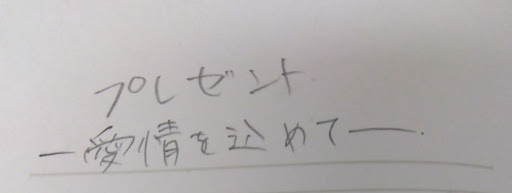 プレゼント
―愛情を込めて―.